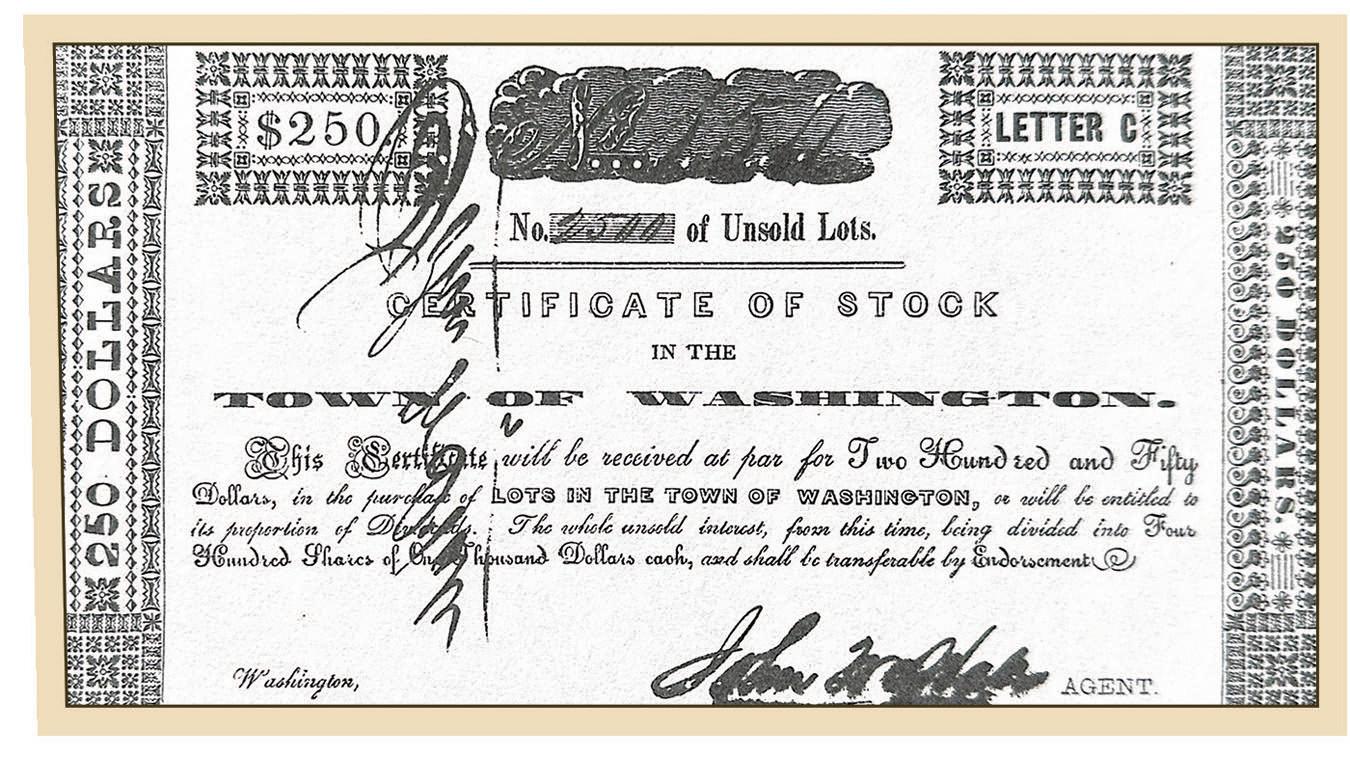 $250.
LETTER C
No. 2500 of Unsold Lots.
CERTIFICATE OF STOCK
IN THE
TOWN OF WASHINGTON.
This Certificate will be received at par for Two Hundred and Fifty
Dollars, in the purchase of LOTS IN THE TOWN OF WASHINGTON, or will be entitled to
its proportion of Dividends. The whole unsold interest, from this time, being divided into Four
Hundred Shares of One Thousand Dollars cash, and shall be transferable by Endorsement
Washington,
John AGENT.
250 DOLLARS
250 DOLLARS.